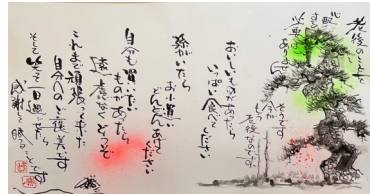 老後のことまで
必要は
そうです
今が
老後なのです
おいしいものがあったら
いっぱい食べてください
孫がいたら
お小遣い
どんどんあげてください
自分も買いたい
ものがあったら
遠慮なくどうぞ
これまで頑張ってきた
自分へのご褒美です
そして笑って一日過ごしたら
感謝して眠ることです